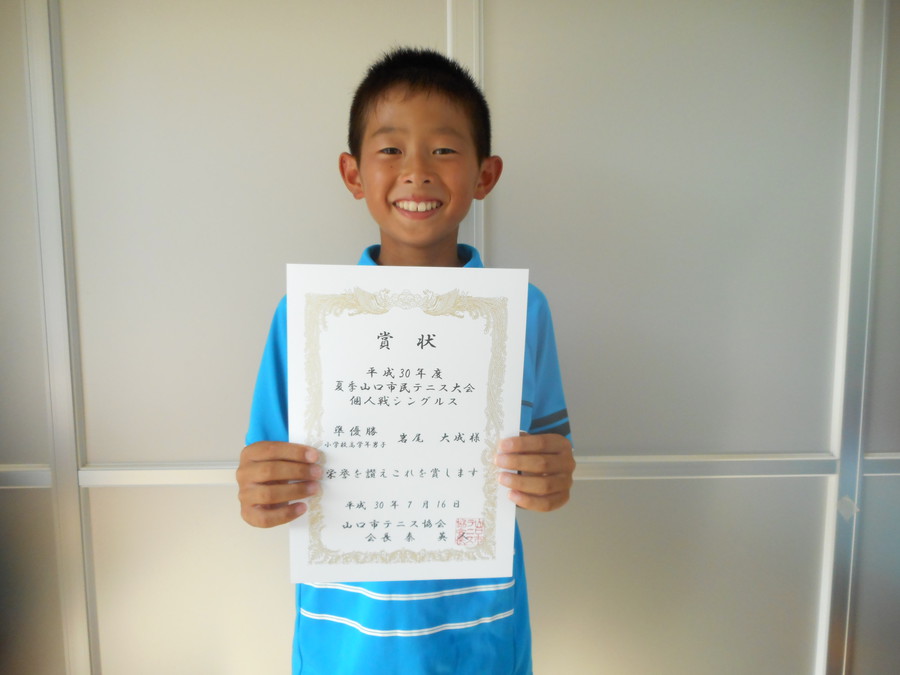 賞状
平成30年度
夏季山口市民テニス大会
個人戦シングルス
準優勝
小学校高学年男子
岩尾 大成様
栄誉を讃えこれを賞します
平成30年7月16日
山口市テニス協会
会長 秦 英